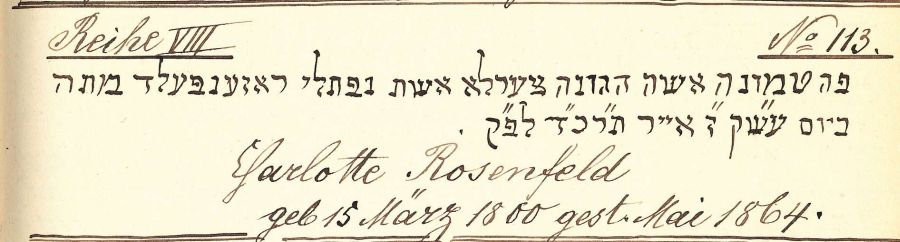 Reihe VIII No 113.
פה טמונה אשה הגונה צערלא אשת נפתלי ראזענפעלד במתה
ביום עש״ק ז״ אייר תרכ״ד לפ״ק .
Charlotte Rosenfeld
geb 15 März 1800 gest. Mai 1864.